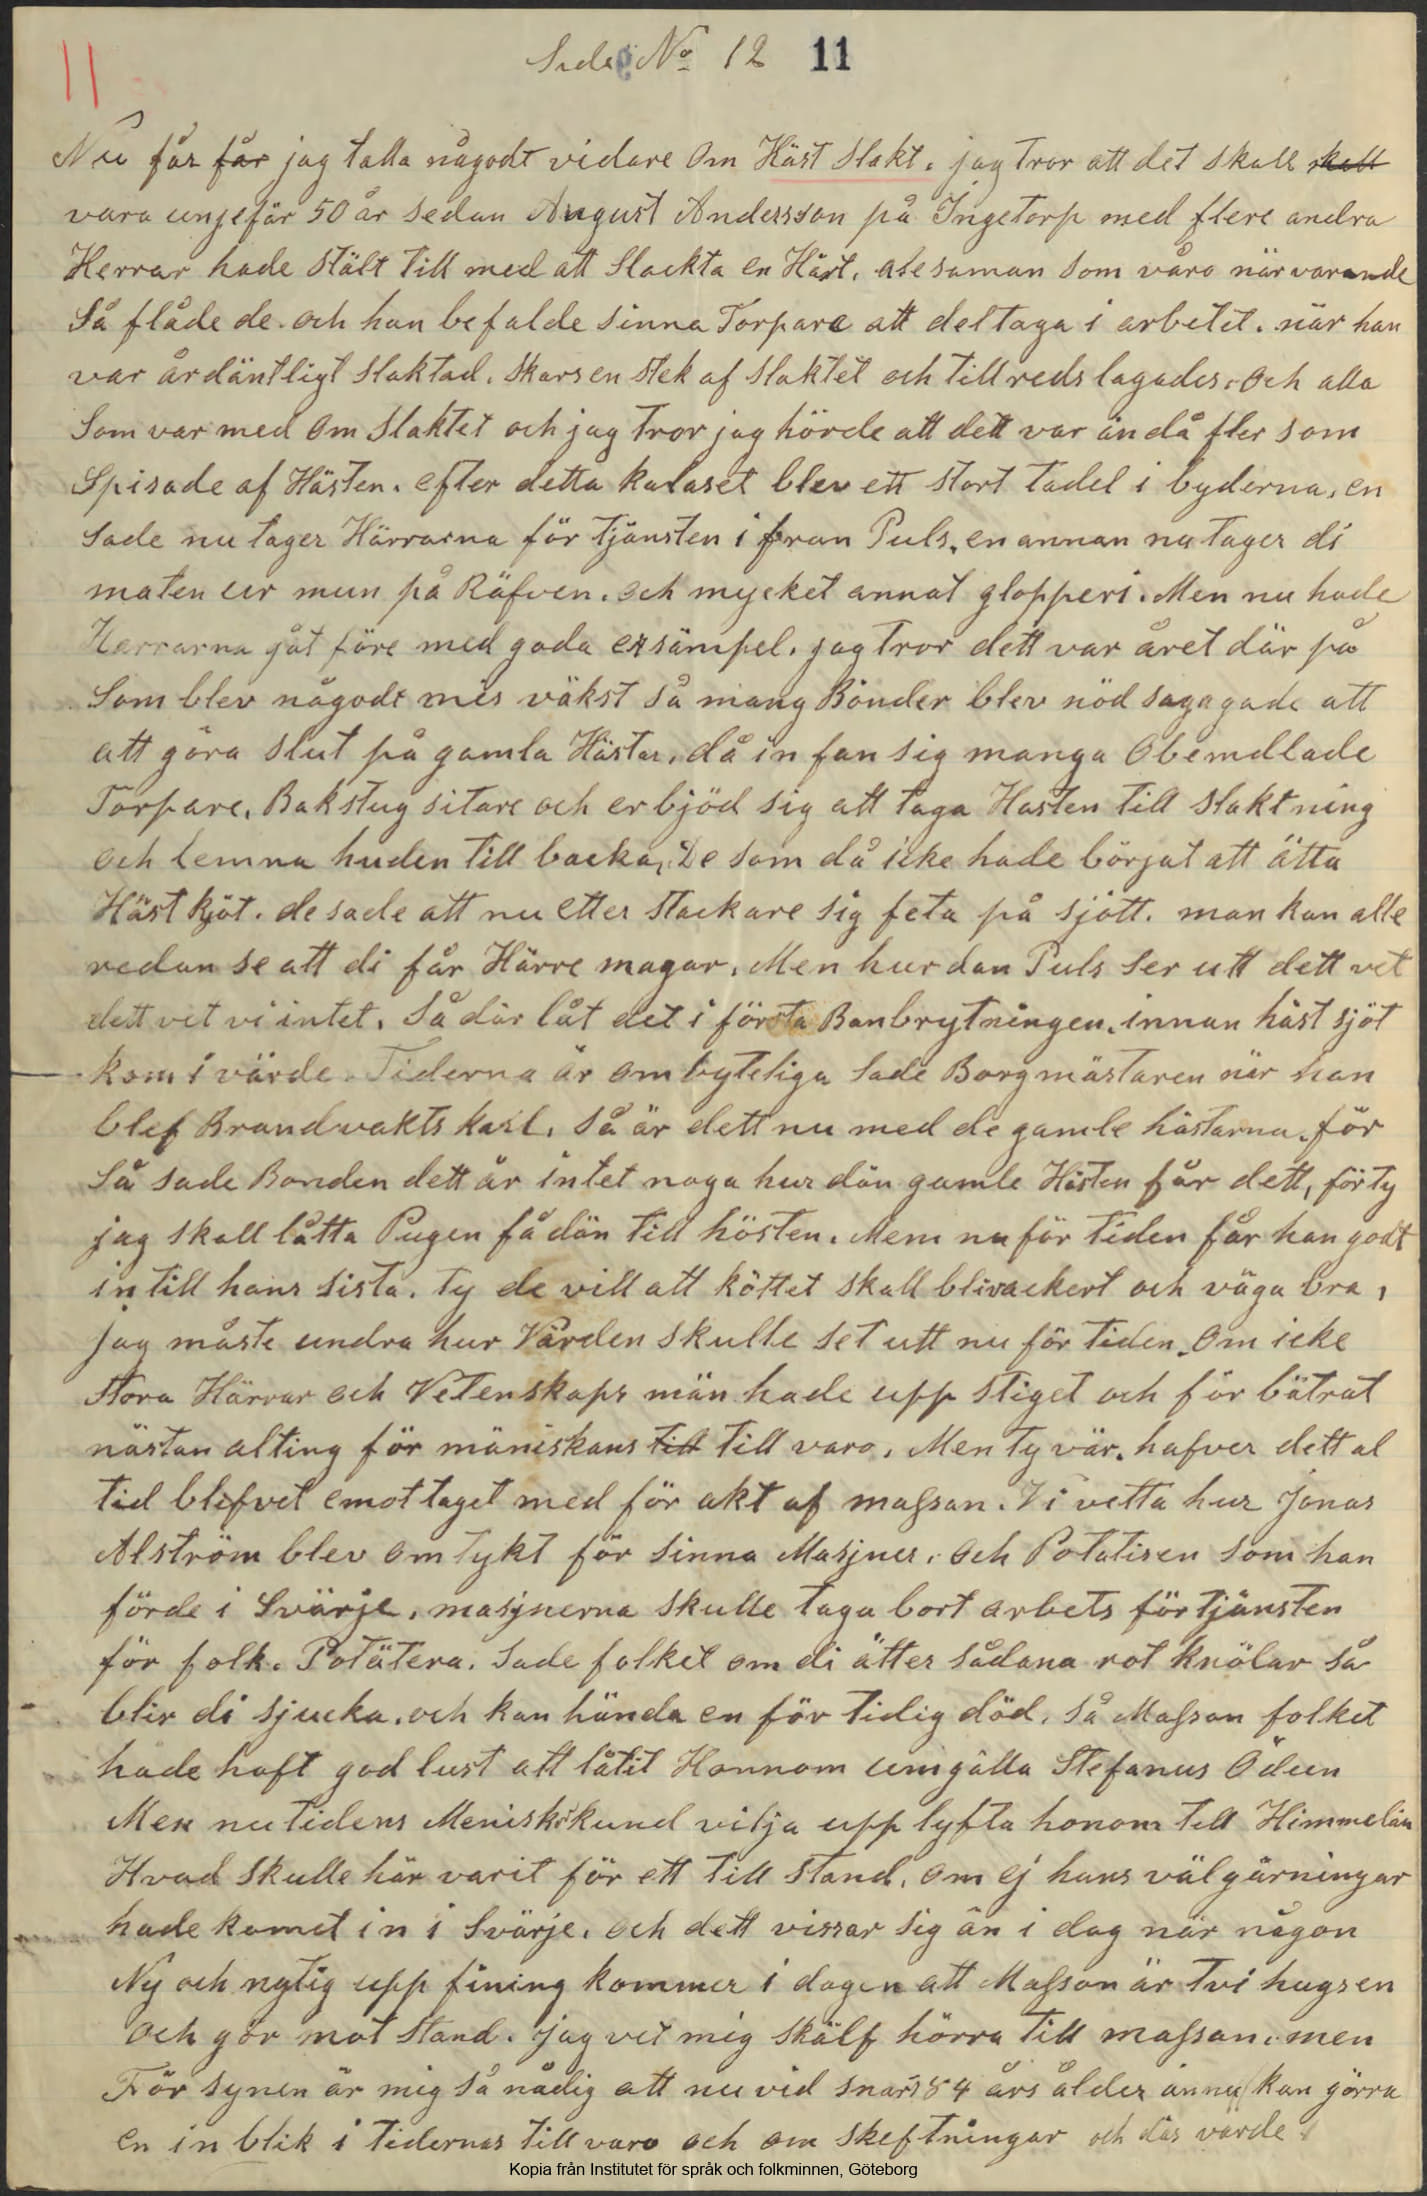 11
Sida No 12 11
Nu får får jag talla någodt vidare Om Häst Slakt. jag tror att det skall skall
vara ungefär 50 år sedan August Andersson på Ingetorp med flere andra
Herrar hade stält till med att Slackta en Häst. alesaman som våro närvarande
Så flåde de. och han befalde sinna Torpare att deltaga i arbetit. när han
var årdäntligt slaktad. skars en stek af slaktet och till reds lagades. Och alla
Som var med Om Slaktet och jag tror jag hörde att dett var ändå fler som
Spisade af Hästen. efter detta kalaset blev ett stort tadel i byderna, en
Sade nu tager Härrarna för tjänsten i fran Puls. en annan nu tager di
maten ur mun på Räfven. Och mycket annat glopperi. Men nu hade
Herrarna gåt före med goda exsämpel. jag tror dett var året där på
Som blev någodt mis väkst så mang Bönder blev nöd sagagade att
att göra slut på gamla Hästar, då in fan sig manga Obemdlade
Torpare, Bakstug sitare och erbjöd sig att taga Hasten till slaktning
och lemna huden till backa, De som då icke hade börjat att ätta
Häst kjöt. de sade att nu etter stackare sig feta på sjött. man kan alle
redan se att di får Härre magar. Men hurdan Puls ser utt dett vet
dett vet vi intet. Så där låt det i första Banbrytningen. innan häst sjöt
kom i värde. Tiderna är ombyteliga Sade Borgmästaren när han
blef Brandvakts karl. Så är dett nu med de gamle hästarna. för
Så sade Bonden dett är intet noga hur dän gamle Hästen får dett, för ty
jag skall låtta Pugen få dän till hösten. Mem nu för tiden får han godt
in till hans sista. ty de vill att köttet skall bli vackert och väga bra,
jag måste undra hur Värden skulle set utt nu för tiden. Om icke
stora Härrar och Vetenskaps män hade upp stiget och för bätrat
nästan alting för mäniskans till till varo. Men ty vär. hafver dett al
tid blifvet emottaget med för akt af massan. Vi vetta hur Jonas
Alström blev omtykt för sinna Masjner. och Potatisen som han
förde i Svärje. masjnerna skulle taga bort arbets förtjänsten
för folk. Potätera. Sade folket om di ätter sådana rot knölar så
blir di sjucka. och kan hända en för tidig död. så Massan folket
hade haft god lust att låtit Honnom umgälla Stefanus Öden
Men nutidens Menisk kund vilja upp lyfta honom till Himmelän
Hvad skulle här varit för ett till stand. Om ej hans välgärningar
hade komet in i Svärje. och dett vissar sig än i dag när någon
Ny och nytig upp fining kommer i dagen att Massan är tvi hugsen
och gör mot stand. jag vet mig skälf hörra till massan. men
För synen är mig så nådig att nu vid snart 84 års ålder ännu kan görra
en in blik i tidernas till varo och om skeftningar och das värde
Kopia från Institutet för språk och folkminnen, Göteborg